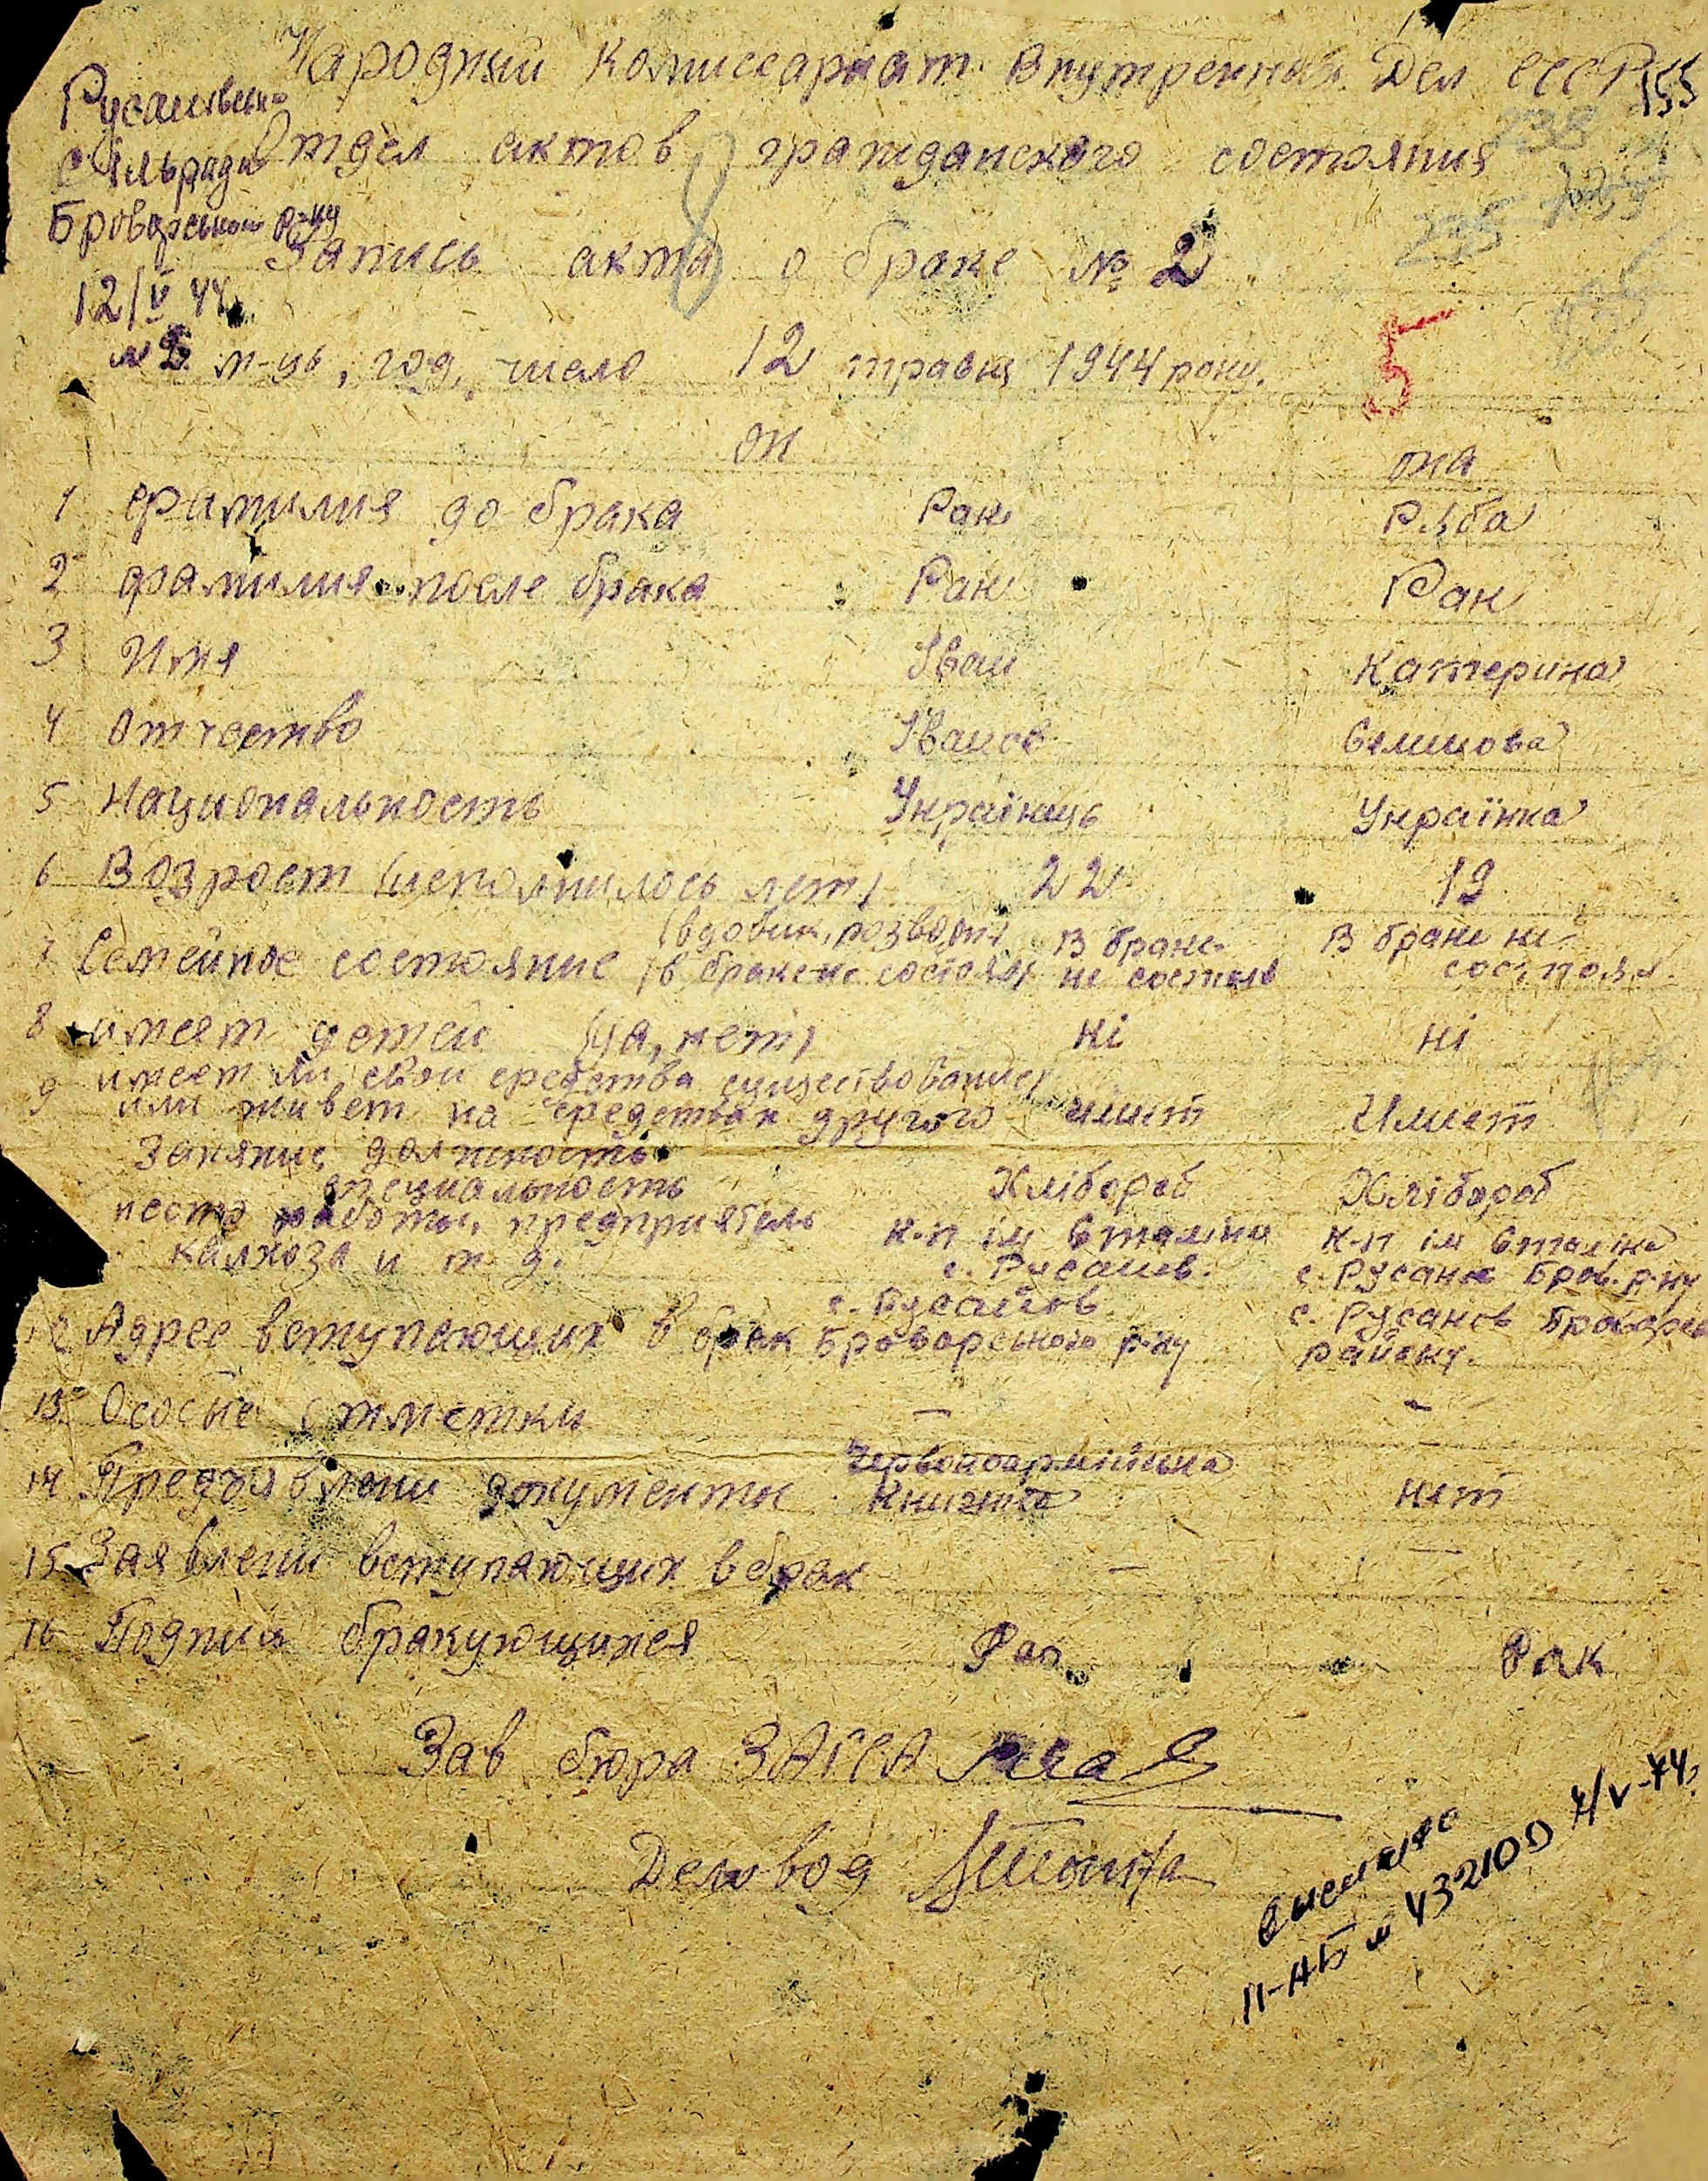 Народный Комиссариат Внутренных Дел СССР 155
Русанівсько
Сільради
Броварського р-ну
12/V 44
№ 2
Отдел актов гражданского состояния
238
235
Запись акта о браке № 2
м-ць, год, число 12 травня 1944 року.
5
он она
1 фамилия до брака Рак Ряба
2 фамилия после брака Рак Рак
3 Имя Іван Катерина
4 Отчество Іванов Семенова
5 Национальность Українець Українка
6 Возраст (исполнилось лет) 22 19
7 Семейное состояние (вдовик, розвод, в браке не состоял) В браке не состояв В браке не состояла
8 имеет детей (да, нет) ні ні
9 имеет ли свои средства существование
или живет на средствах другого имеет Имеет
Занятие должность
специальность Хлібороб Хлібороб
место работы, предприятель к-п ім Сталіна к-п ім Сталіна
калхоза и т д. с. Русанів. с. Русанів Бров. р-ну
12 Адрес вступающих в брак с. Русанов Броварського р-ну с. Русанов Броварс району.
13 Особые отметки — -
14 Предъявлени документы Червоноармійська Книжка нет
15 Заявлени вступающих в брак — —
16 Подписи бракующихся Рак Рак
Зав бюра ЗАГСА
Деловод
II-АБ № 432100 7/V-74.